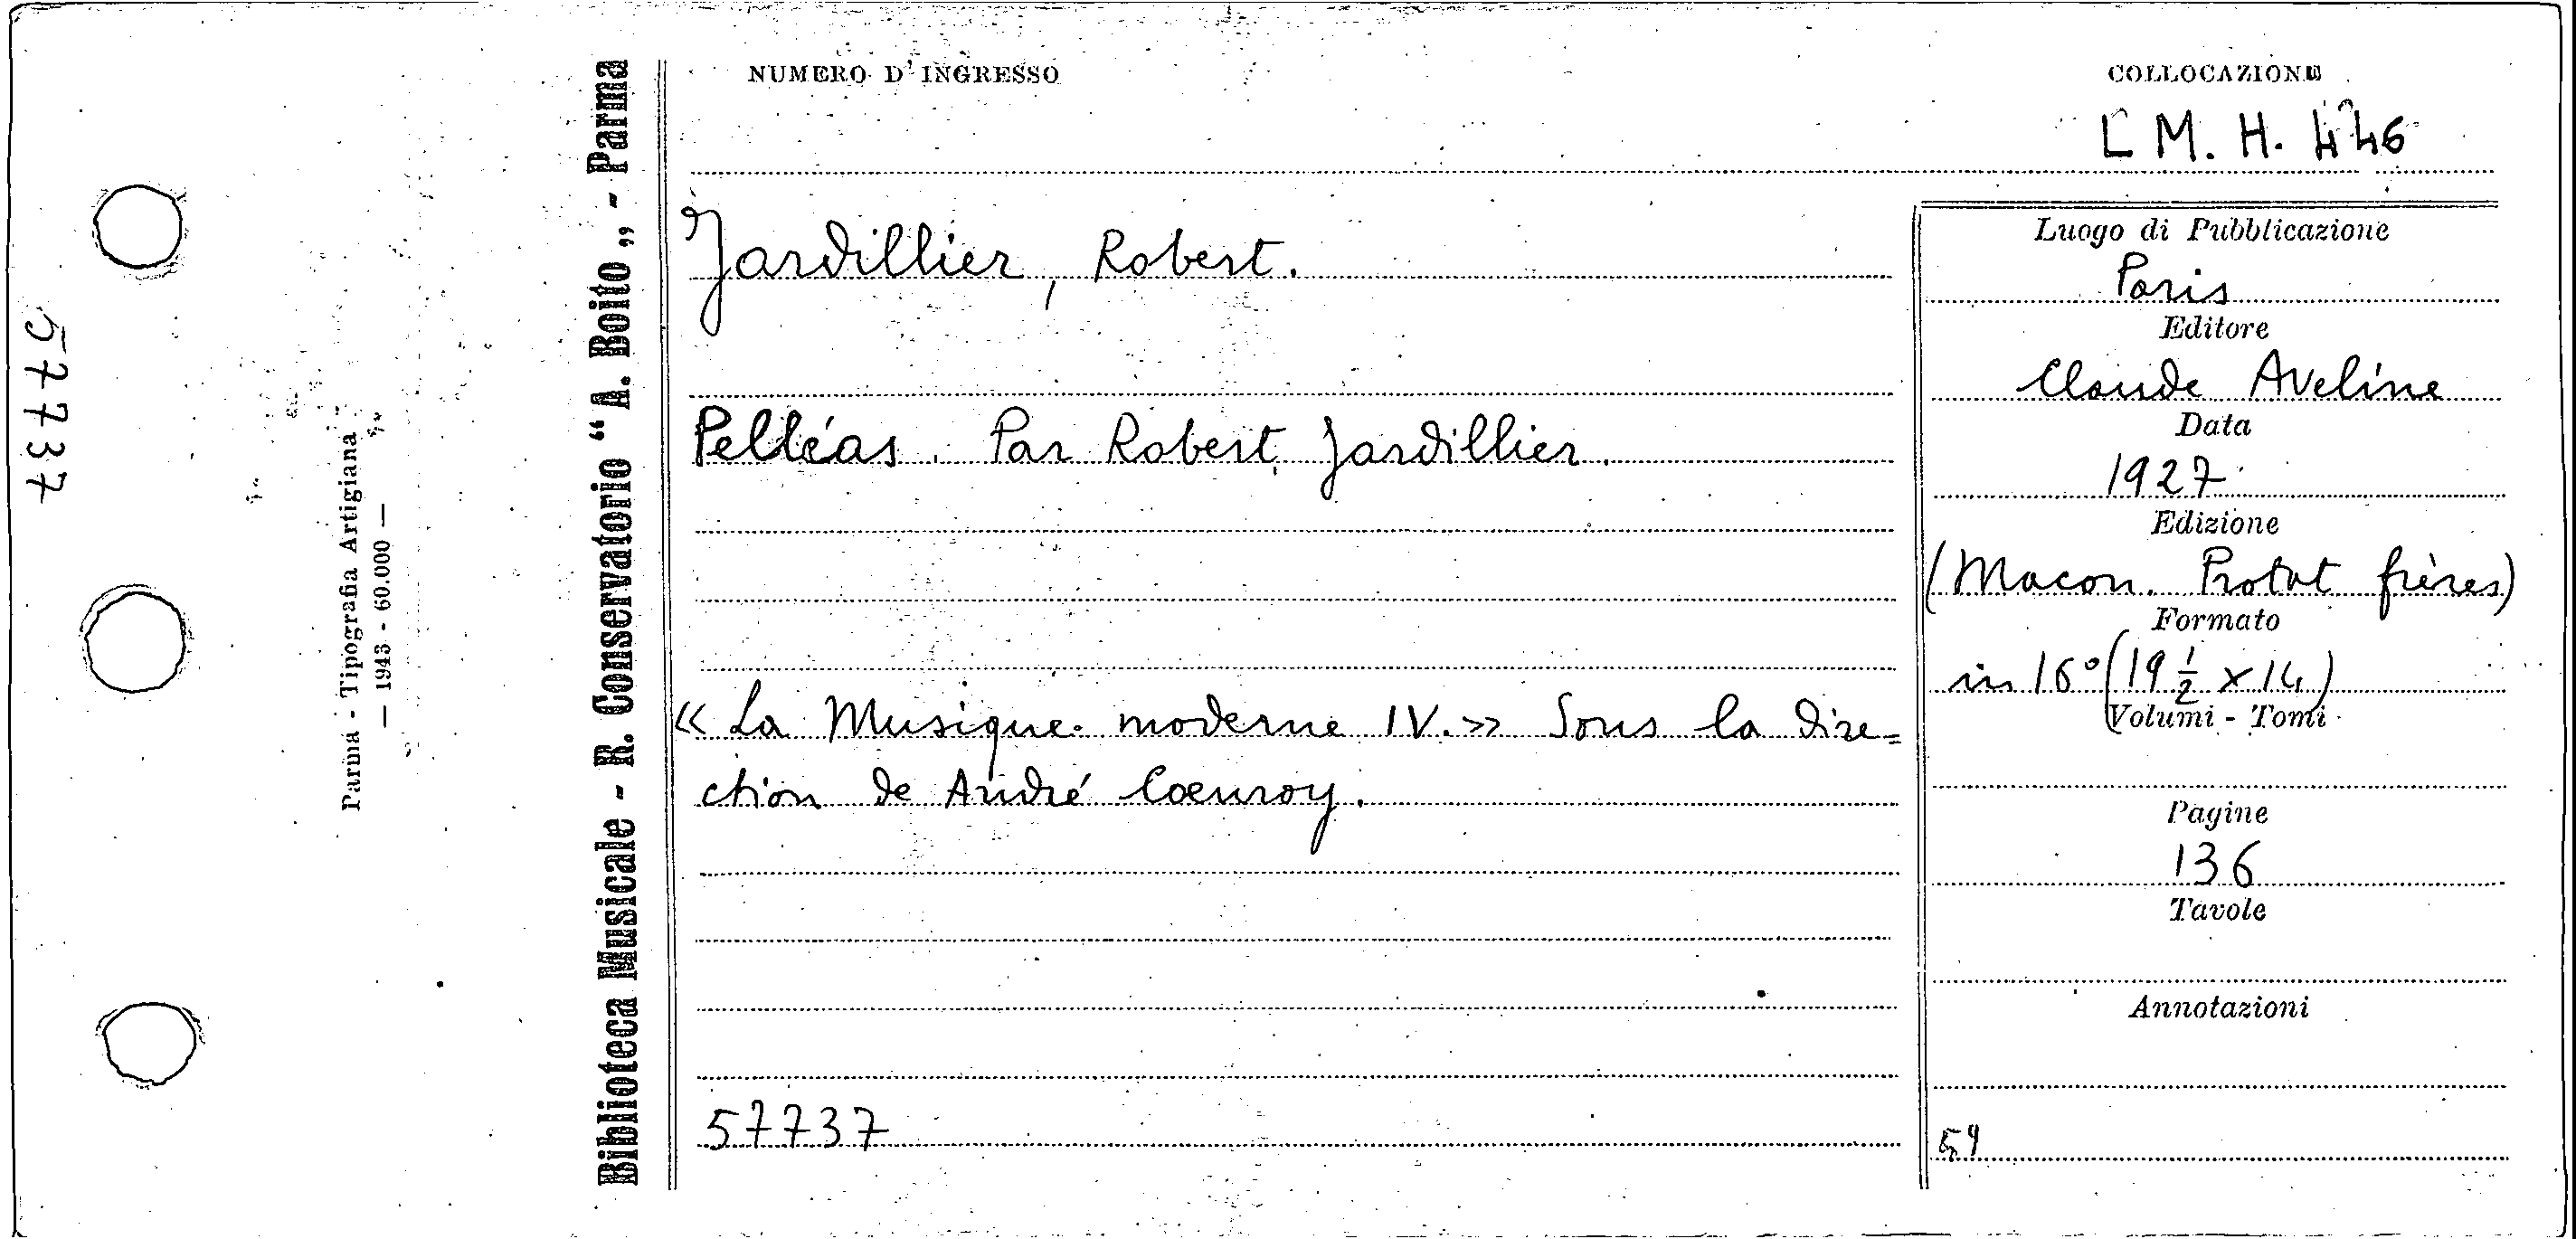 NUMERO D'INGRESSO
COLLOCAZIONE
L M. H. 446
Jardillier, Robert.
Pelléas. Par Robert Jardillier.
« La Musique moderne IV. » Sous la dire=
ction de André Coeuroy.
57737
Luogo di Pubblicazione
Paris
Editore
Claude Aveline
Data
1927
Edizione
(Macon. Protat frères)
Formato
in 16° (19 ½ x 14)
Volumi - Tomi
Pagine
136
Tavole
Annotazioni
Biblioteca Musicale - R. Conservatorio “A. Boito„ - Parma
Parma - Tipografia Artigiana
— 1943 - 60.000 —
57737